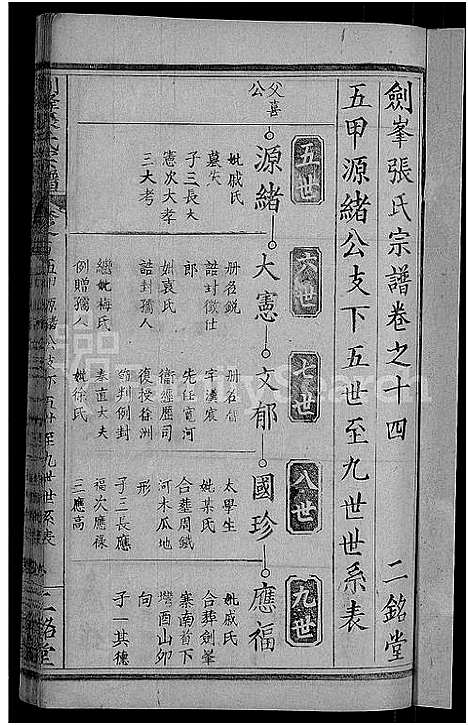 劍峯張氏宗譜卷之十四
二銘堂
五甲源緒公支下五世至九世世系表
五世
六世
七世
八世
九世
父喜
公
源緒
大憲
文郁
國珍
應福
妣戚氏
墓失
子三長大
憲次大孝
三大考
册名銳
誥封徵仕
郎
妣袁氏
誥封孺人
繼妣梅氏
例贈孺人
册名
字漢宸
先任寬河
衞經歷司
復授徐洲
節判例封
奉直大夫
妣徐氏
太學生
妣某氏
合葬周鐵
河木瓜地
形
子三長應
福次應祿
三應高
妣戚氏
合葬劍峯
寨南首下
塆酉山卯
向
子一其德
五甲源緒公支下五世至九世世系表
二銘堂